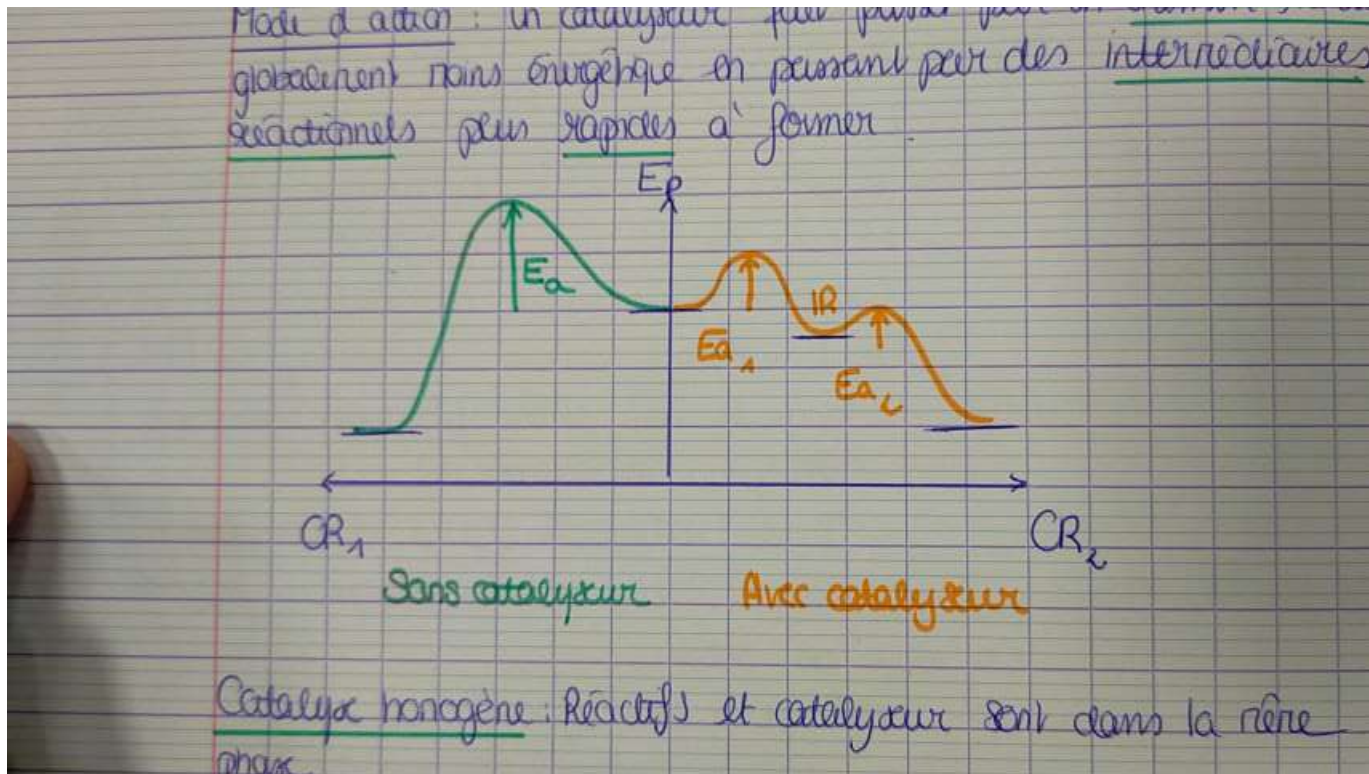 Mode d'action : un catalyseur fait passer par un chemin
globalement moins énergétique en passant par des intermédiaires
réactionnels plus rapides à former.
Ep
Ea
IR
Ea1
Ea2
CR1
CR2
Sans catalyseur
Avec catalyseur
Catalyse homogène : Réactifs et catalyseur sont dans la même
phase